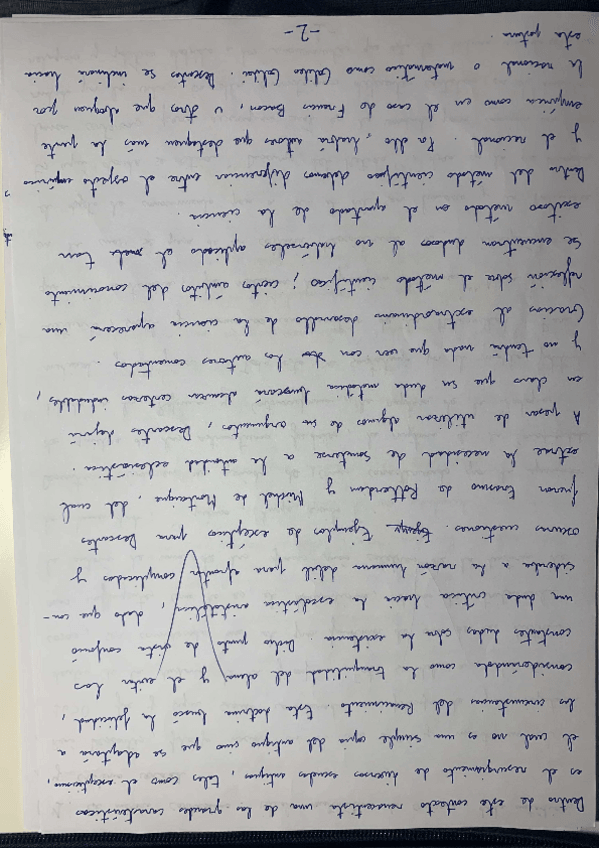 Dentro de este contexto renacentista una de las grandes características
es el resurgimiento de diversas escuelas antiguas, tales como el escepticismo,
el cual no es una simple copia del antiguo sino que se adaptaría a
las circunstancias del Renacimiento. Esta doctrina busca la felicidad,
considerándola como la tranquilidad del alma y el evitar las
constantes dudas sobre la existencia. Dicho punto de vista conformó
una dura crítica hacia la escolástica aristotélica, dado que con-
sideraba a la razón humana débil para afrontar complicadas y
oscuras cuestiones. Ejemplos de escépticos para Descartes
fueron Erasmo de Rotterdam y Michel de Montaigne, del cual
extrae la necesidad de someterse a la autoridad eclesiástica.
A pesar de utilizar algunos de sus argumentos, Descartes dejará
en claro que su duda metódica buscará alcanzar certezas indudables,
y no tendrá nada que ver con los autores comentados.
Gracias al extraordinario desarrollo de la ciencia aparecerá una
reflexión sobre el método científico; ciertos ámbitos del conocimiento
se encuentran dudosos al no habérseles aplicado el tan
exitoso método en el apartado de la ciencia.
Dentro del método científico debemos diferenciar entre el aspecto empírico
y el racional. Pa ello, habría autores que destaquen más la parte
empírica como en el caso de Francis Bacon, u otros que aboguen por
la racional o matemática como Galileo Galilei. Descartes se inclinará hacia
esta postura.
-2-